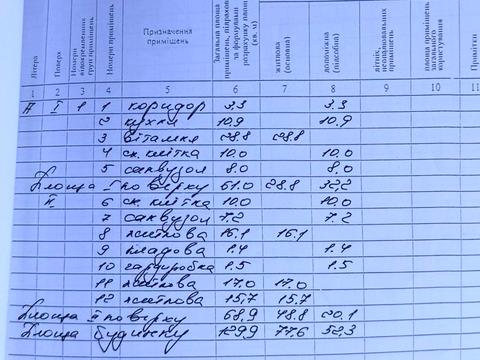 Літера Поверх Номери відокремлених груп приміщень Номери приміщень Призначення приміщень Загальна площа приміщень, підрахов за формулами розрахунку площ (кв. м) житлова (основна) допоміжна (пасивна) літніх, неопалювальних приміщень площа приміщень загального користування Примітки
1 2 3 4 5 6 7 8 9 10 11
А I 1 1 коридор 3.3 3.3
2 кухня 10.9 10.9
3 вітальня 28.8 28.8
4 сх. клітка 10.0 10.0
5 санвузол 8.0 8.0
Площа I поверху 61.0 28.8 32.2
II 6 сх. клітка 10.0 10.0
7 санвузол 7.2 7.2
8 житлова 16.1 16.1
9 кладова 1.4 1.4
10 гардиробка 1.5 1.5
11 житлова 17.0 17.0
12 житлова 15.7 15.7
Площа II поверху 68,9 48.8 20.1
Площа будинку 129,9 77.6 52,3